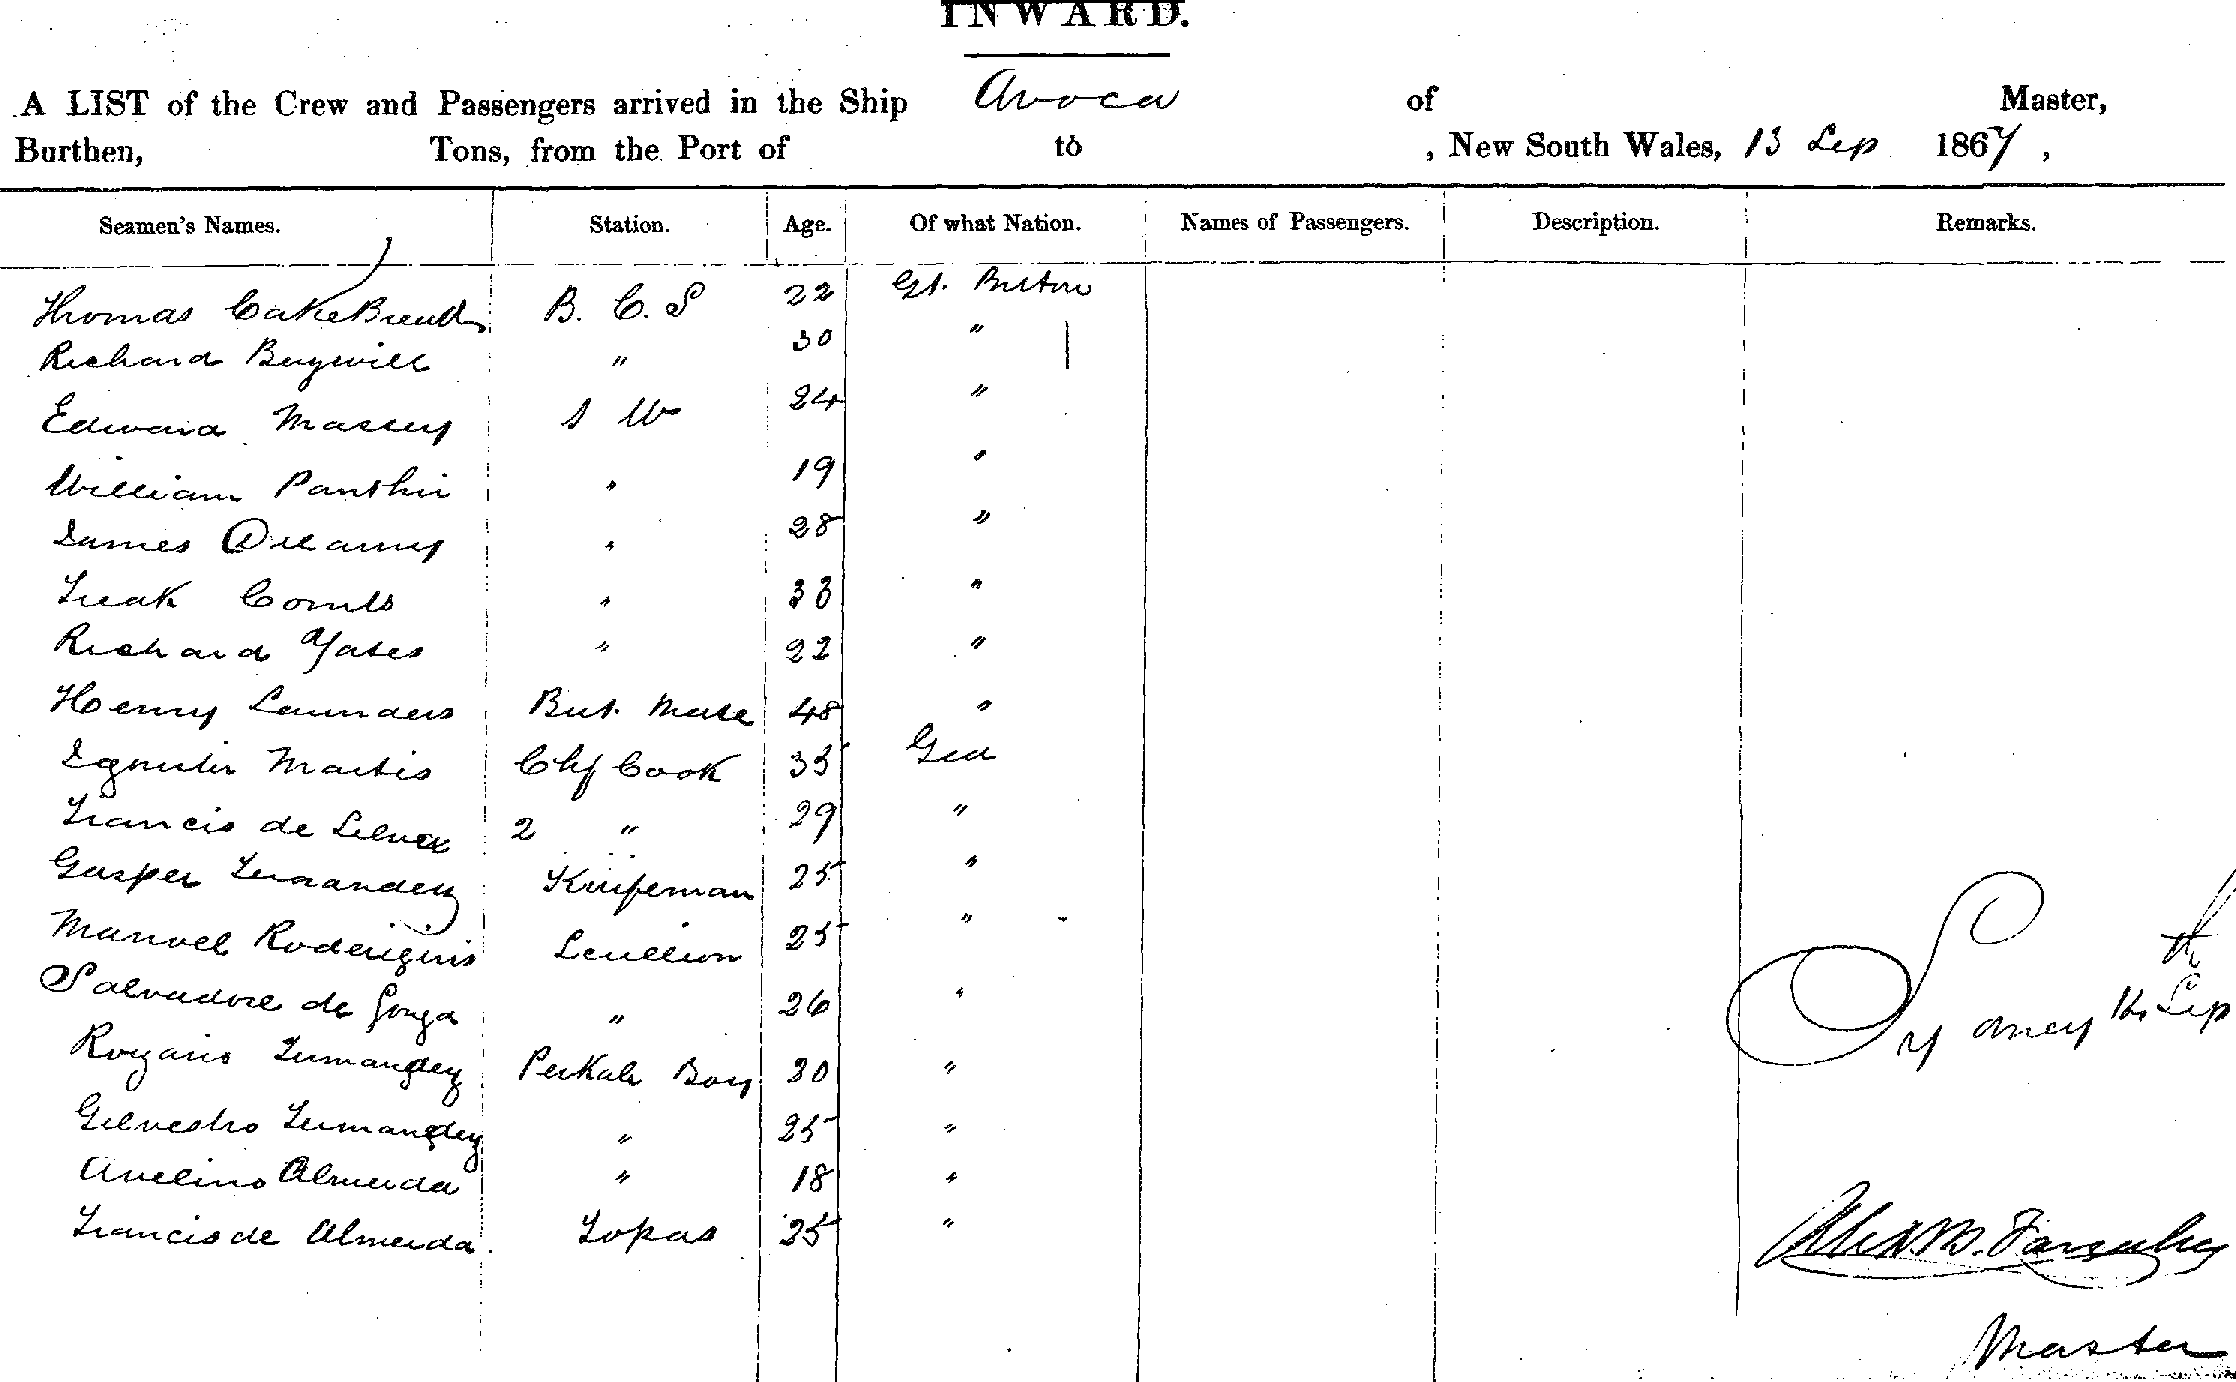 INWARD.
A LIST of the Crew and Passengers arrived in the Ship Avoca of Master,
Burthen, Tons, from the Port of to , New South Wales, 13 Sep 1867,
Seamen's Names. Station. Age. Of what Nation. Names of Passengers. Description. Remarks.
Thomas CakeBread B. C. S 22 Gt. Britain
Richard 〃 30 〃
Edward Massey S W 24 〃
William Panthir 〃 19 〃
James Delaney 〃 28 〃
Comls 〃 33 〃
Richard Yates 〃 22 〃
Henry Saunders But. Mate 48 〃
Martis Chf Cook 35 Goa
Francis de Silva 2 〃 29 〃
Gasper Fernandez Knifeman 25 〃
Manoel Roderiguis Scullion 25 〃
Salvadore de Souza 〃 26 〃
Rozario Fernandez Boy 30 〃
Silvestro Fernandez 〃 25 〃
Avelino Almeida 〃 18 〃
Francis de Almeida Topas 25 〃
Sydney 14th Sep
Master